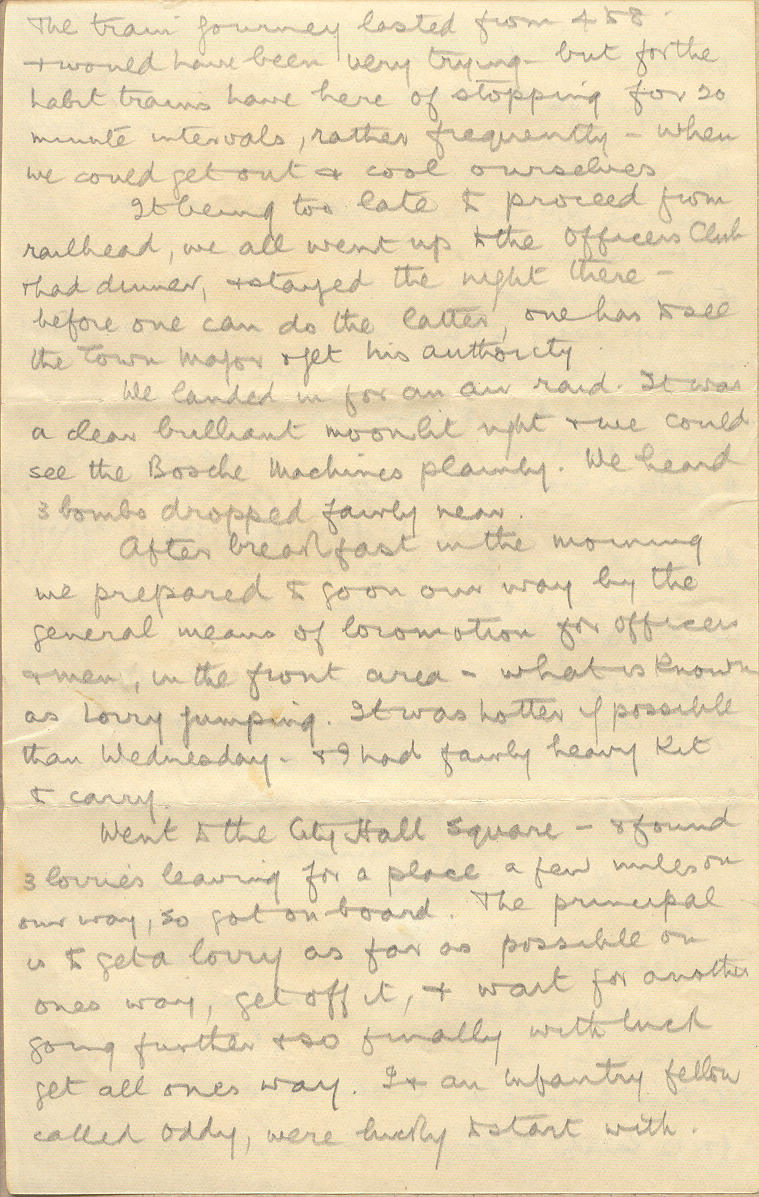 The train journey lasted from 4 to 8
& would have been very trying - but for the
habit trains have here of stopping for 20
minute intervals, rather frequently - when
we could get out & cool ourselves
It being too late to proceed from
railhead, we all went up to the Officers Club
& had dinner, & stayed the night there -
before one can do the latter, one has to see
the Town Major & get his authority.
We landed in for an air raid. It was
a clear brilliant moonlit night & we could
see the Bosche Machines plainly. We heard
3 bombs dropped fairly near.
After breakfast in the morning
we prepared to go on our way by the
general means of locomotion for officers
& men, in the front area - what is known
as Lorry jumping. It was hotter if possible
than Wednesday - & I had fairly heavy Kit
to carry.
Went to the City Hall Square - & found
3 lorries leaving for a place a few miles on
our way, so got on board. The principal
is to get a lorry as far as possible on
ones way, get off it, & wait for another
going further & so finally with luck
get all ones way. I & an infantry fellow
called Oddy, were lucky to start with.